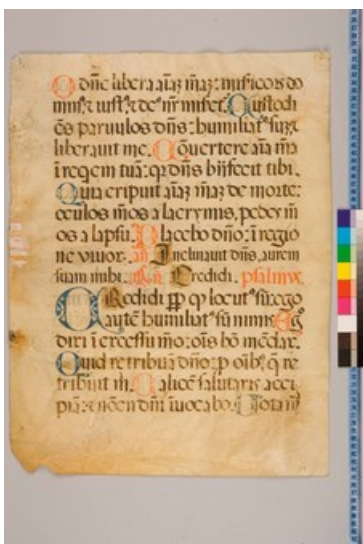 O dñe libera aĩaʒ mãʒ: misericors do
minꝰ ⁊ iustꝰ ⁊ deꝰ nr̃ miseret̃. Custodi
ẽs parvulos dñs: humiliatꝰ suʒ ⁊
liberavit me. Convertere aĩa mã
ĩ requiem tuã: qr̃ dñs bñfecit tibi.
Quia eripuit aĩaʒ mãʒ de morte:
oculos mẽos a lacrymis, pedes m̃
os a lapsu. Placebo dño: ĩ regio
ne vivor. añ Inclinavit dñs, aurem
suam mihi. añ Credidi. psalmus.
Credidi ꝓp̃ qđ locutꝰ sũ: ego
autẽ humiliatꝰ sũ nimis. Ego
dixi ĩ excessu mẽo: õis hõ mẽdax.
Quid retribuã dño: ꝓ oĩbꝰ q̃ re
tribuit m̃. Calicẽ salutaris acci
piã: ⁊ nõen dñi ĩvocabo. Vota m̃